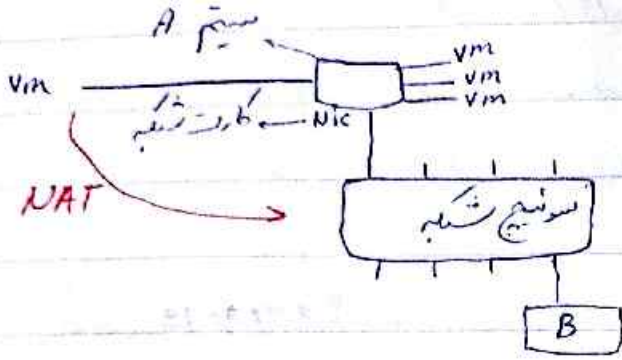 سیستم A
vm
vm
vm
vm
کارت شبکه ← Nic
NAT
سوئیچ شبکه
B